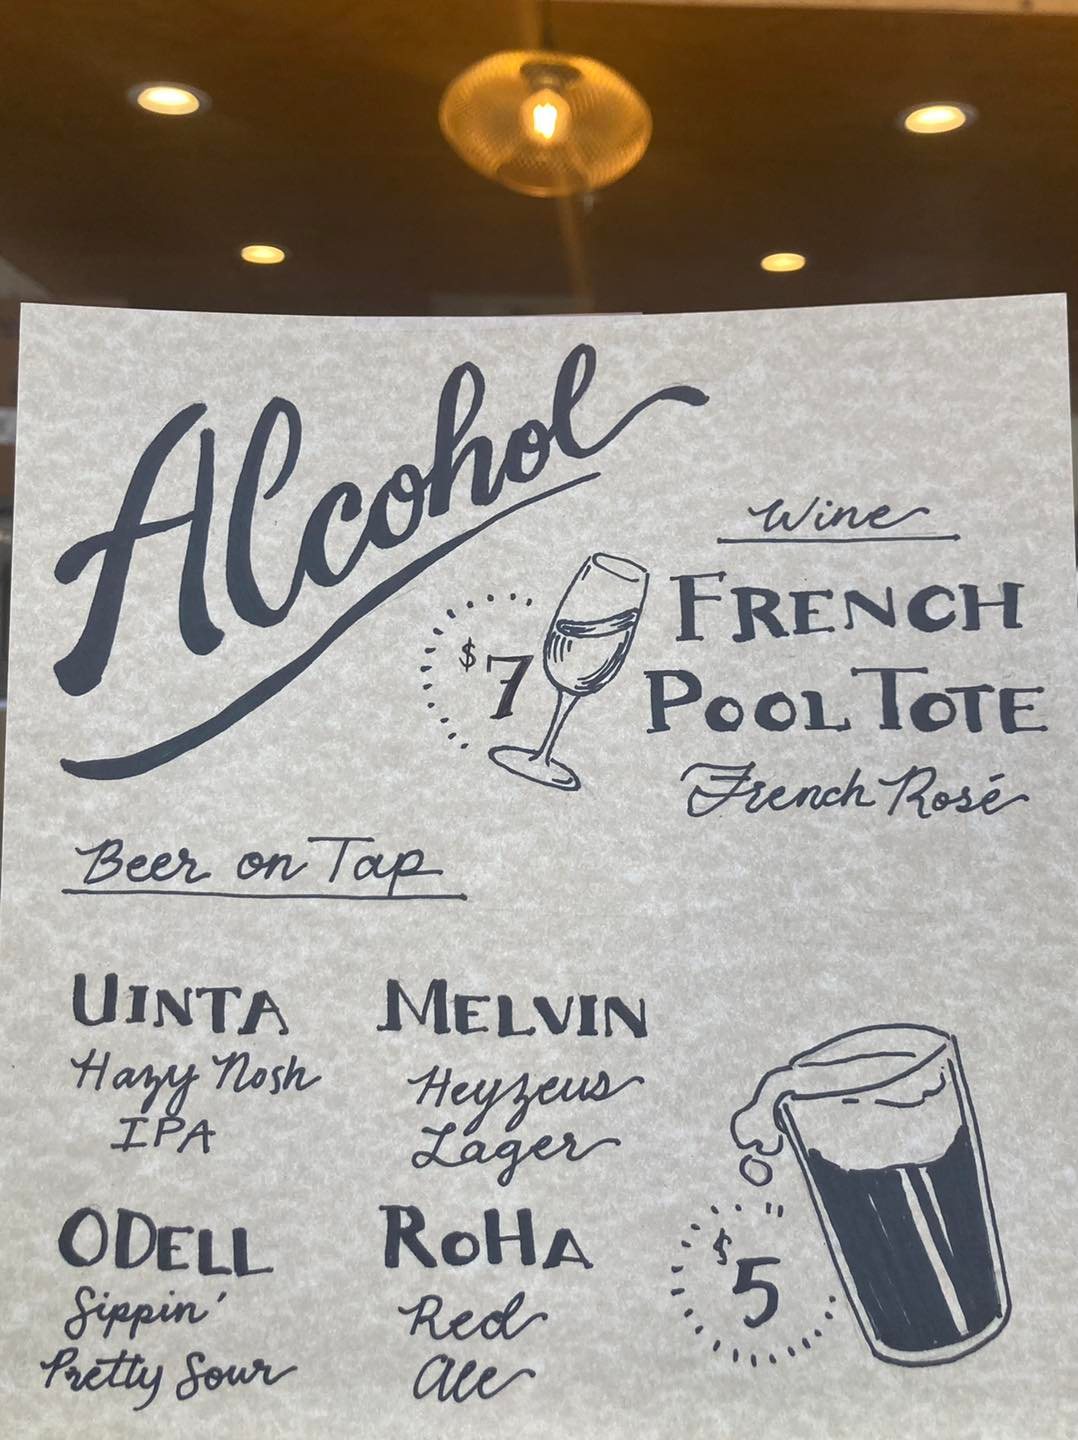 Alcohol
Wine
$7
FRENCH
POOL TOTE
French Rosé
Beer on Tap
UINTA
Hazy Nosh
IPA
MELVIN
Heyzeus
Lager
ODELL
Sippin'
Pretty Sour
ROHA
Red
Ale
$5